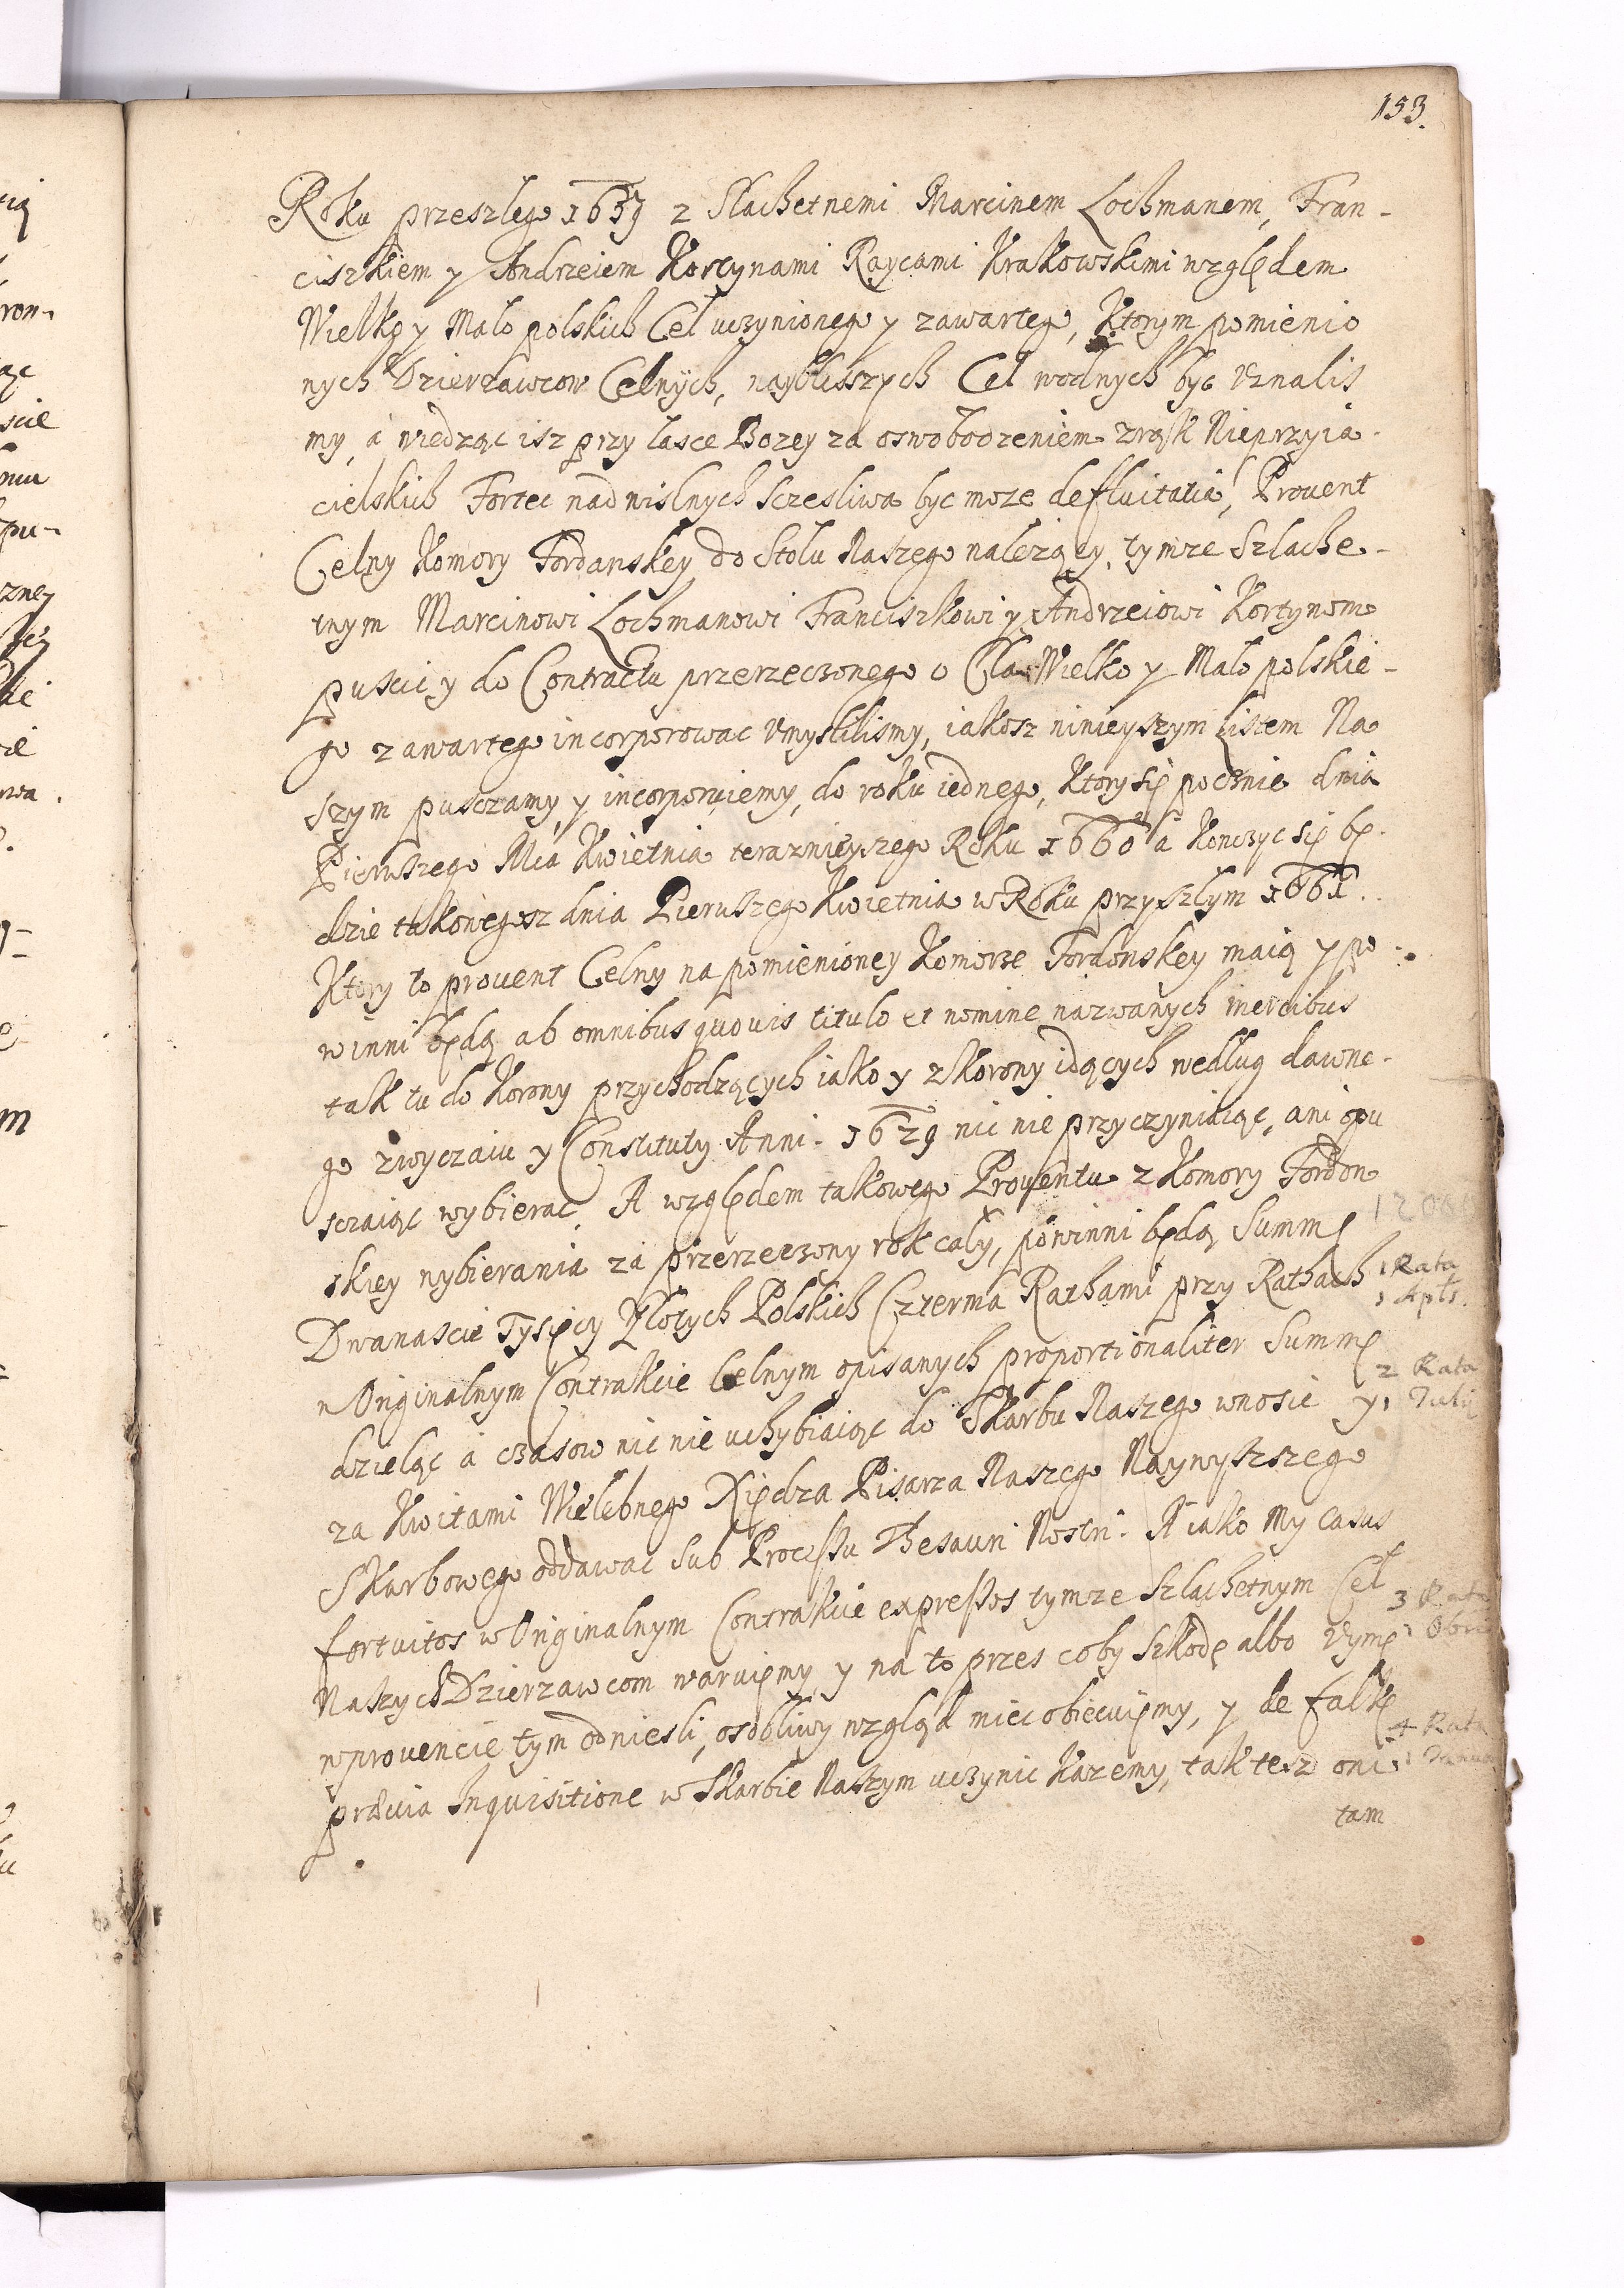 153.
Roku przeszlego 1659 z Slachetnemi Marcinem Lochmanem, Fran-
ciszkiem y Andrzeiem Kortynami Raycami Krakowskimi względem
Wielko y Malo polskich Cel uczynionego y zawartego, Ktorym pomienio
nych Dzierzawcow Celnych, nayblisszych Cel wodnych byc uznalis
my, a widząc isz przy lasce Bozey za oswobodzeniem z rąk Nieprzyia-
cielskich Fortec nad wislnych sczesliwa byc moze defluitatia, Prouent
Celny Komory Fordanskey do Stolu Naszego nalezący, tymze Szlache-
tnym Marcinowi Lochmanowi Franciszkowi y Andrzeiowi Kortynom
puscic y do Contractu przerzeczonego o Cla Wielko y Malo polskie-
go zawartego incorporowac umyslilismy, iakosz ninieyszym Listem Na
szym pusczamy y incorporuiemy, do roku iednego, Ktory się pocznie dnia
Pierwszego Mca Kwietnia teraznieyszego Roku 1660 a Konczyc się bę-
dzie takowegosz dnia Pierwszego Kwietnia w Roku przyszlym 1661.
Ktory to prouent Celny na pomienioney Komorze Fordonskey maią y po-
winni będą ab omnibus quouis titulo et nomine nazwanych mercibus
tak tu do Korony przychodzących iako y z Korony idących wedlug dawne-
go zwyczaiu y Constituty Anni. 1629 nic nie przyczyniaiąc, ani opu
sczaiąc wybierac. A względem takowego Prouentu z Komory Fordon
skiey wybierania za przerzeczony rok caly, powinni będą Summę
1200
Dwanascie Tysięcy Zlotych Polskich Czterma Rathami przy Rathach
1 Rata
1 Aplis.
w Originalnym Contrakcie Celnym opisanych proportionaliter Summę
2 Rata
dzieląc a czasow nic nie uchybiaiąc do Skarbu Naszego wnosic y
1 Julij
za Kwitami Wielebnego Xiędza Pisarza Naszego Naywyszszego
Skarbowego oddawac sub Processu Thesauri Nostri. A iako My casus
fortuitos w Originalnym Contrakcie expressos tymze Szlachetnym Cel
3 Rata
Naszych Dzierzawcom waruięmy y na to przes coby szkodę albo uymę
1 Obris
w prouencie tym odniesli, osobliwy wzgląd miec obiecuięmy, y de falkę
4 Rata
præuia Inquisitione w Skarbie Naszym uczynic Kazemy, tak tesz oni
1 Janua
tam